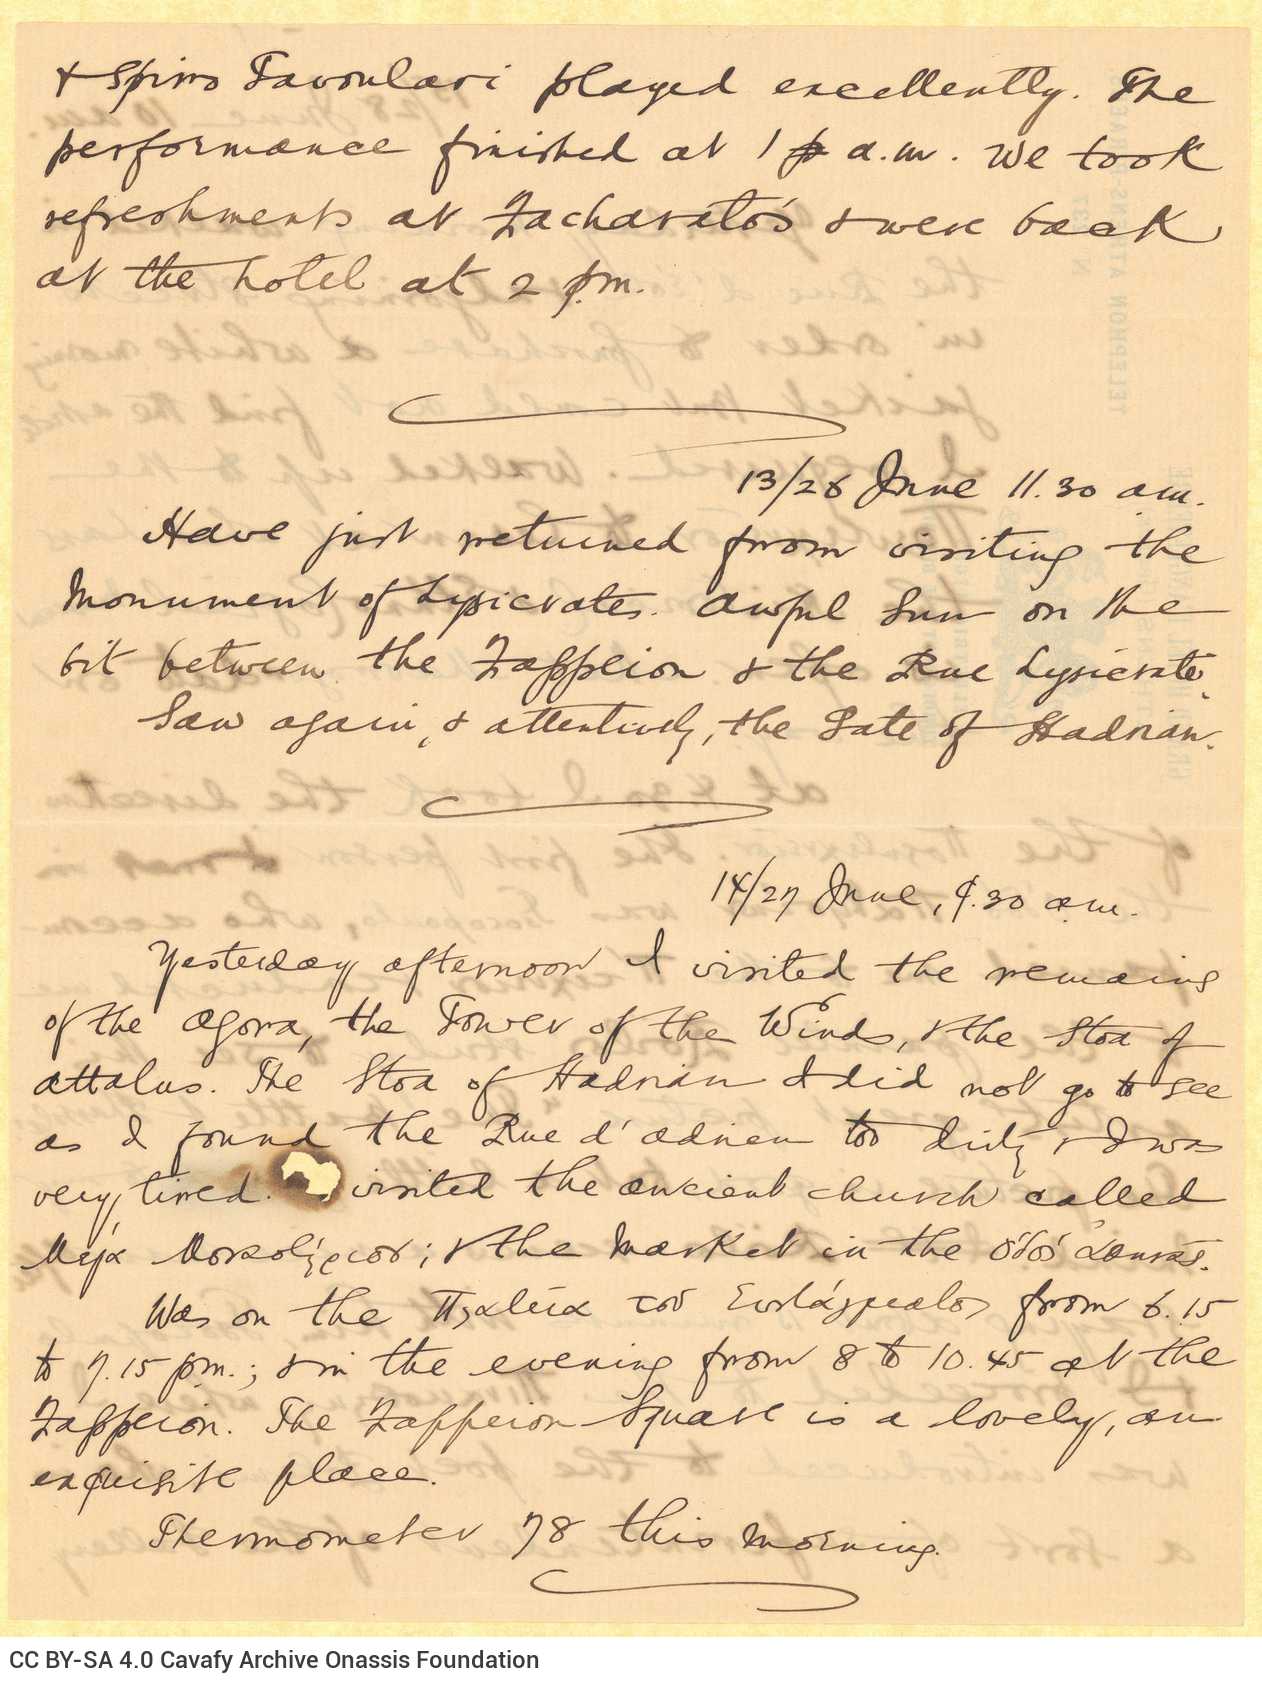 & Spiro Tavoulari played excellently. The
performance finished at 1 p a.m. We took
refreshments at Zacharato's & were back
at the hotel at 2 p.m.
13/26 June 11.30 a.m.
Have just returned from visiting the
Monument of Lysicrates. Awful sun on the
bit between the Zappeion & the Rue Lysicrate.
Saw again, & attentively, the Gate of Hadrian.
14/27 June, 9.30 a.m.
Yesterday afternoon I visited the remains
of the Agora, the Tower of the Winds, & the Stoa of
Attalus. The Stoa of Hadrian I did not go to see
as I found the Rue d'Adrien too dirty & I was
very tired. visited the ancient church called
Μέγα Μοναστήριον; & the Market in the
Was on the Πλατεία τοῦ Συντάγματος from 6.15
to 7.15 p.m.; & in the evening from 8 to 10.45 at the
Zappeion. The Zappeion Square is a lovely, an
exquisite place.
Thermometer 78 this morning.
CC BY-SA 4.0 Cavafy Archive Onassis Foundation